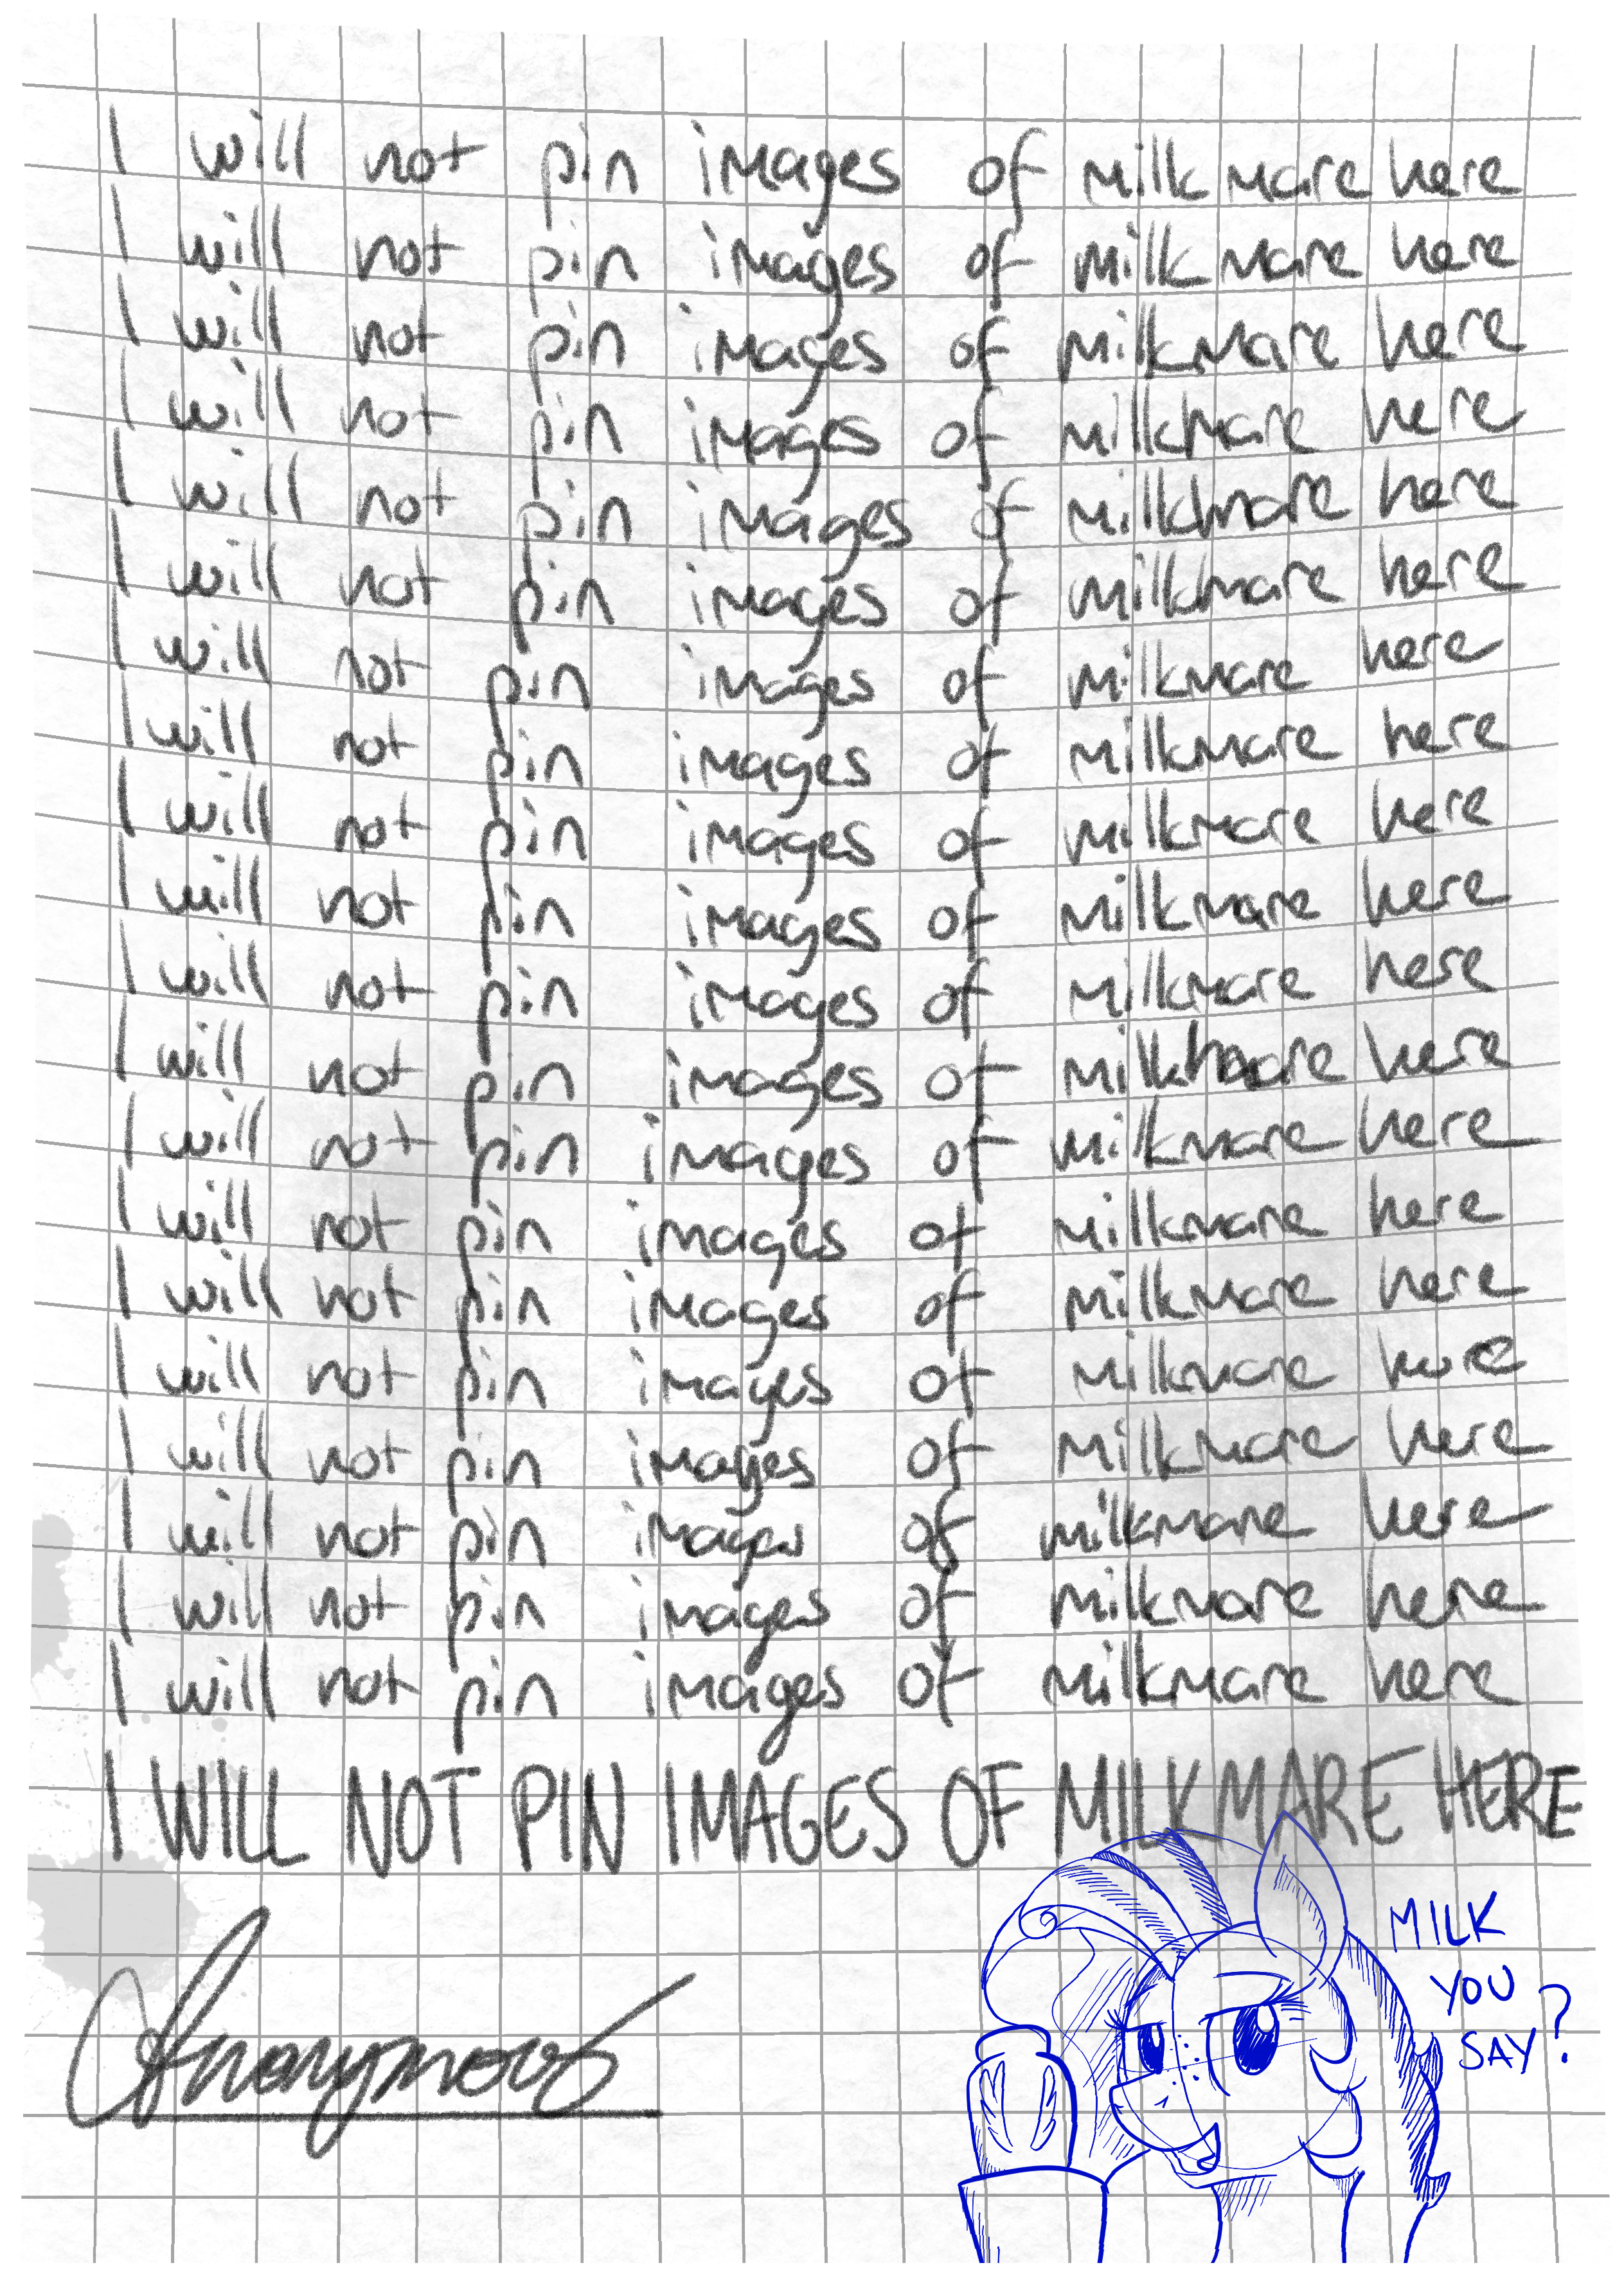 I will not pin images of milkmare here
I will not pin images of milkmare here
I will not pin images of milkmare here
I will not pin images of milkmare here
I will not pin images of milkmare here
I will not pin images of milkmare here
I will not pin images of milkmare here
I will not pin images of milkmare here
I will not pin images of milkmare here
I will not pin images of milkmare here
I will not pin images of milkmare here
I will not pin images of milkmare here
I will not pin images of milkmare here
I will not pin images of milkmare here
I will not pin images of milkmare here
I will not pin images of milkmare here
I will not pin images of milkmare here
I will not pin images of milkmare here
I will not pin images of milkmare here
I will not pin images of milkmare here
I WILL NOT PIN IMAGES OF MILKMARE HERE
MILK
YOU
SAY?
Anonymous